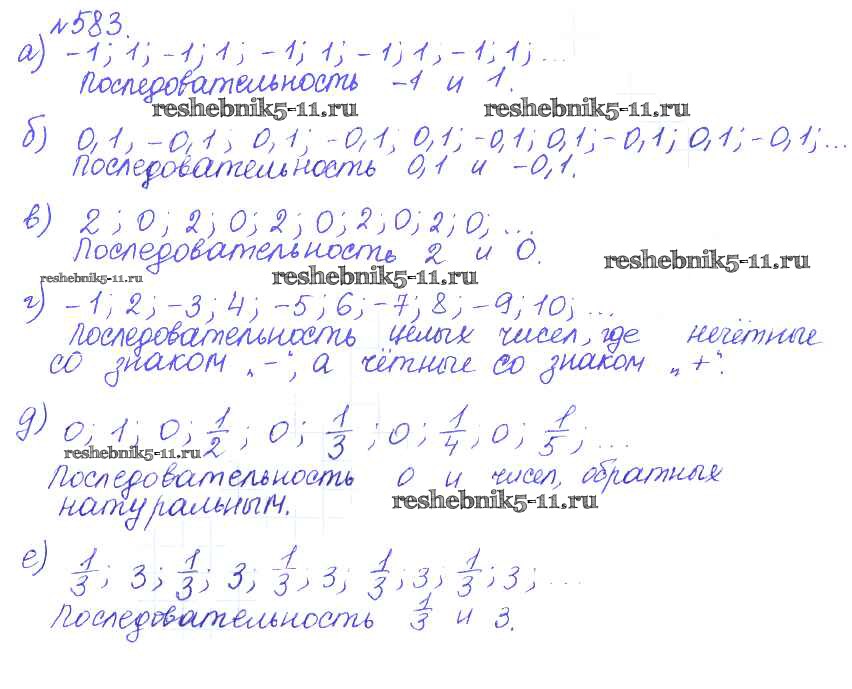 №583.
а) -1; 1; -1; 1; -1; 1; -1; 1, -1; 1; ...
Последовательность -1 и 1.
reshebnik5-11.ru reshebnik5-11.ru
б) 0,1, -0,1; 0,1; -0,1; 0,1; -0,1; 0,1; -0,1; 0,1; -0,1; ...
Последовательность 0,1 и -0,1.
в) 2; 0; 2; 0; 2; 0; 2; 0; 2; 0; ...
Последовательность 2 и 0.
reshebnik5-11.ru reshebnik5-11.ru reshebnik5-11.ru
г) -1; 2; -3; 4; -5; 6; -7; 8; -9; 10; ...
Последовательность целых чисел, где нечётные
со знаком „-“, а чётные со знаком „+“.
д) 0; 1; 0; 1/2; 0; 1/3; 0; 1/4; 0; 1/5; ...
reshebnik5-11.ru
Последовательность 0 и чисел, обратных
натуральным.
reshebnik5-11.ru
е) 1/3; 3; 1/3; 3; 1/3; 3; 1/3; 3; 1/3; 3; ...
Последовательность 1/3 и 3.